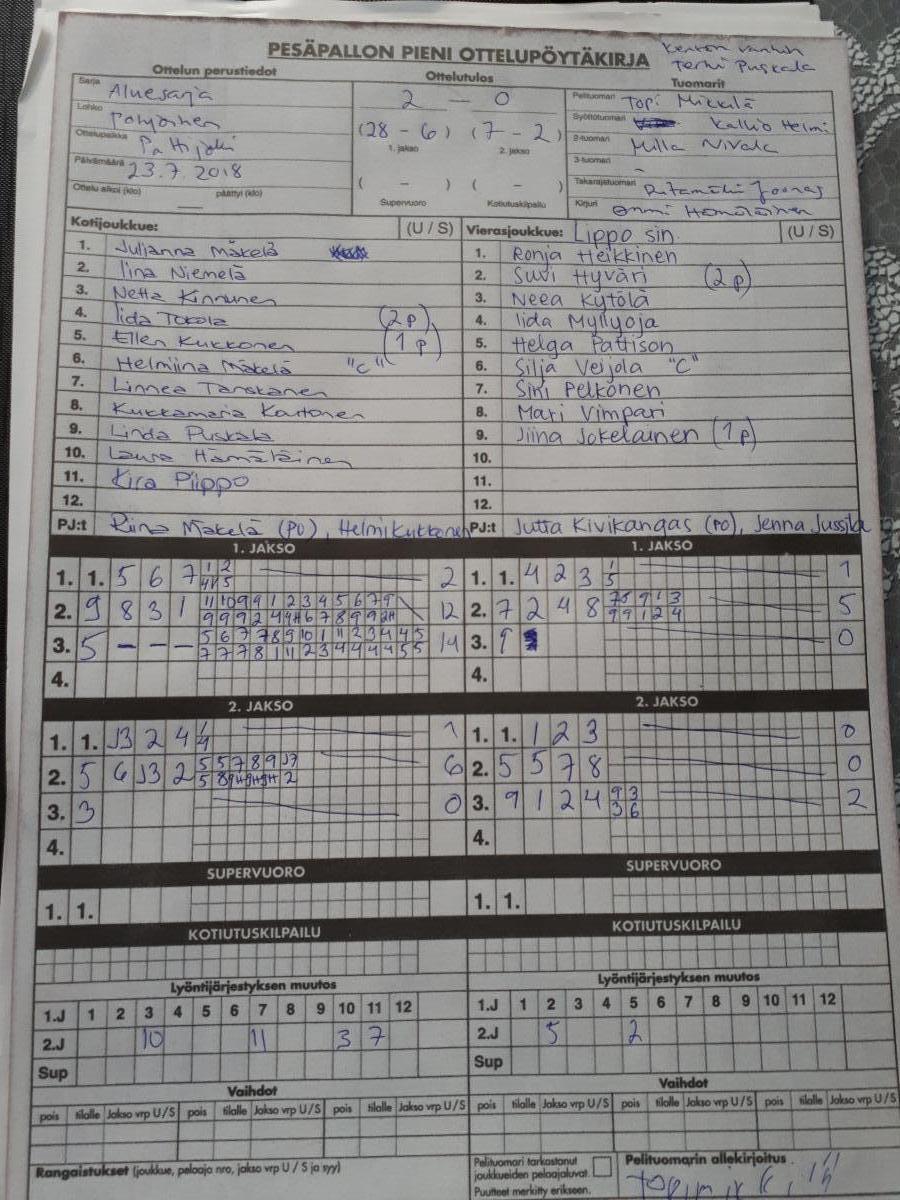 PESÄPALLON PIENI OTTELUPÖYTÄKIRJA
Kentän vanhin
Terhi Puskala
Ottelun perustiedot
Ottelutulos
Tuomarit
Sarja Aluesarja
Lohko Pohjoinen
Ottelupaikka Pattijoki
Päivämäärä 23.7.2018
Ottelu alkoi (klo) päättyi (klo)
2 — 0
(28 - 6) (7 - 2)
1. jakso 2. jakso
( - ) ( - )
Supervuoro Kotiutuskilpailu
Pelituomari Topi Mikkilä
Syöttötuomari Kallio Helmi
2-tuomari Milla Nivala
3-tuomari -
Takarajatuomari Ratamäki Joonas
Kirjuri Onni Hämäläinen
Kotijoukkue: (U / S)
1. Julianna Mäkelä
2. Iina Niemelä
3. Netta Kinnunen
4. Iida Tokola (2p)
5. Ellen Kukkonen (1p)
6. Helmiina Mäkelä "C"
7. Linnea Tanskanen
8. Kukkamaria Kautonen
9. Linda Puskala
10. Laura Hämäläinen
11. Kira Piippo
12.
PJ:t Riina Mäkelä (PO), Helmi Kukkonen
Vierasjoukkue: Lippo sin. (U / S)
1. Ronja Heikkinen
2. Suvi Hyväri (2p)
3. Neea Kytölä
4. Iida Myllyoja
5. Helga Pattison
6. Silja Veijola "C"
7. Sini Pelkonen
8. Mari Vimpari
9. Jiina Jokelainen (1p)
10.
11.
12.
PJ:t Jutta Kivikangas (PO), Jenna Jussila
1. JAKSO
1. 1. 5 6 7 1 2 2
2. 9 8 3 1 11 10 9 9 1 2 3 4 5 6 7 9 12
3. 5 - - - 5 6 7 7 8 9 10 1 11 2 3 4 4 5 14
7 7 7 8 1 11 2 3 4 4 4 4 5 5
4.
1. JAKSO
1. 1. 4 2 3 1 1
5
2. 7 2 4 8 5
9 9 1 2 4
3. 9 0
4.
2. JAKSO
1. 1. J3 2 4 1 1
4
2. 5 6 J3 2 5 5 7 8 9 J7 6
3. 3 0
4.
2. JAKSO
1. 1. 1 2 3 0
2. 5 5 7 8 0
3. 9 1 2 4 9 3 2
3 6
4.
SUPERVUORO
1. 1.
SUPERVUORO
1. 1.
KOTIUTUSKILPAILU
KOTIUTUSKILPAILU
Lyöntijärjestyksen muutos
1.J 1 2 3 4 5 6 7 8 9 10 11 12
2.J 10 11 3 7
Sup
Lyöntijärjestyksen muutos
1.J 1 2 3 4 5 6 7 8 9 10 11 12
2.J 5 2
Sup
Vaihdot
pois tilalle Jakso vrp U/S pois tilalle Jakso vrp U/S pois tilalle Jakso vrp U/S
Vaihdot
pois tilalle Jakso vrp U/S pois tilalle Jakso vrp U/S pois tilalle Jakso vrp U/S
Rangaistukset (joukkue, pelaaja nro, jakso vrp U / S ja syy)
Pelituomari tarkastanut
joukkueiden pelaajaluvat.
Puutteet merkitty erikseen.
Pelituomarin allekirjoitus